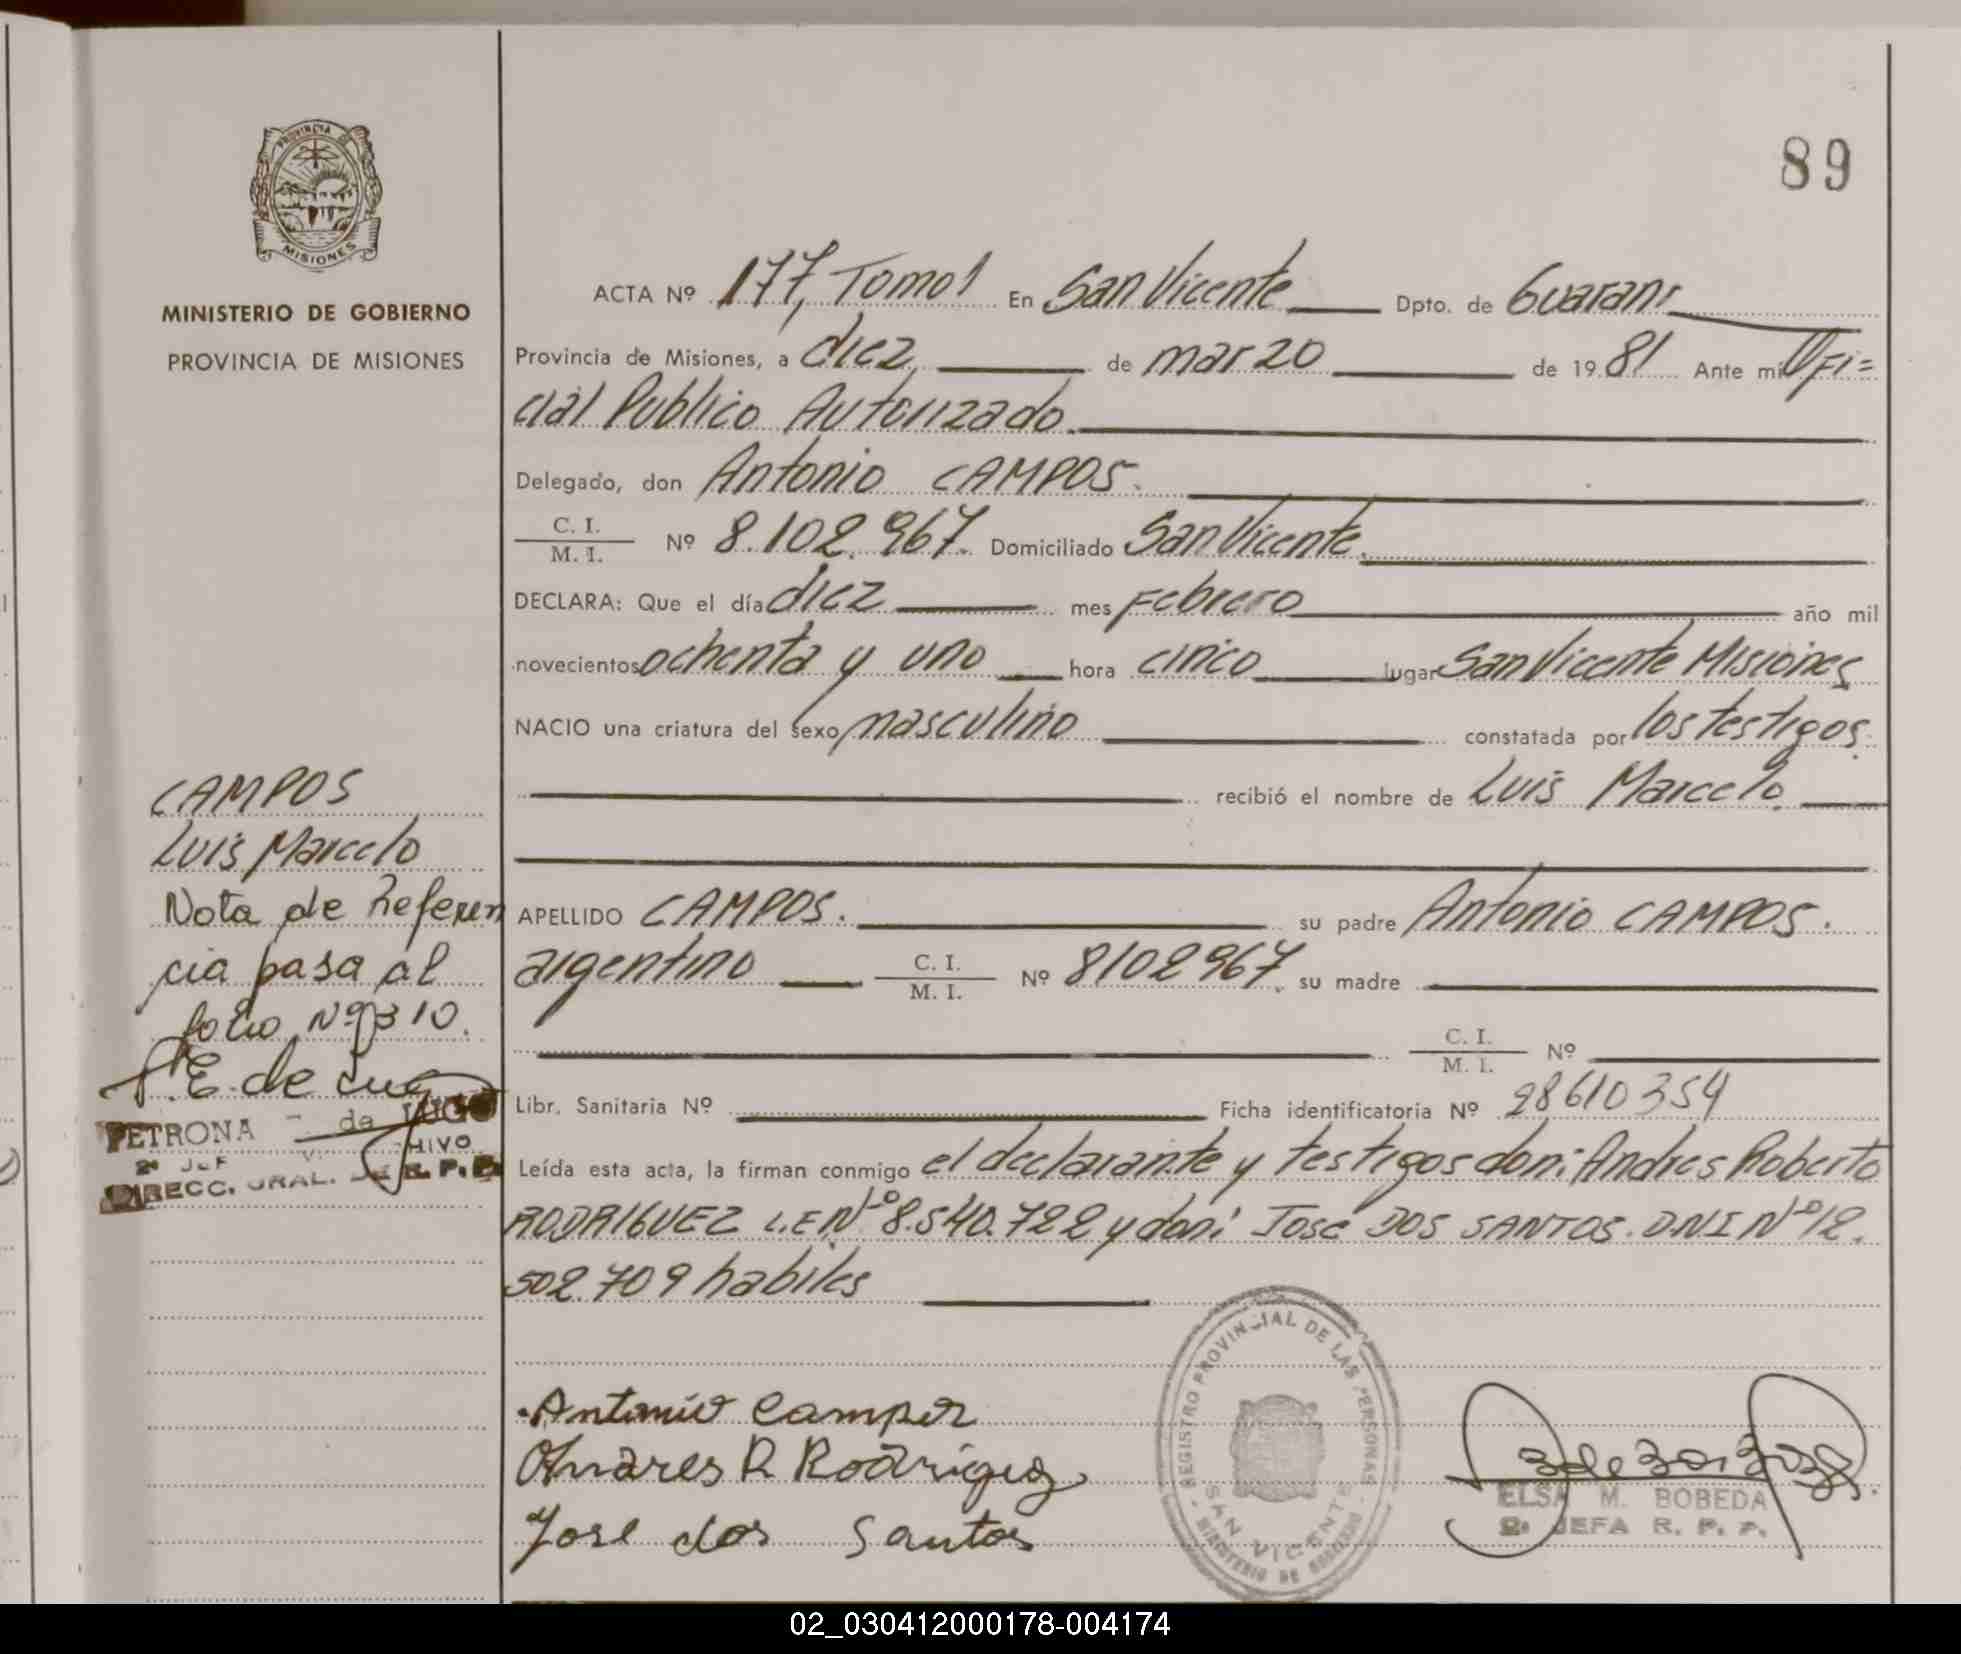 89
PROVINCIA DE
MISIONES
MINISTERIO DE GOBIERNO
PROVINCIA DE MISIONES
ACTA Nº 177, Tomo 1 En San Vicente Dpto. de Guarani
Provincia de Misiones, a diez de marzo de 1981 Ante mi Ofi=
cial Publico Autorizado.
Delegado, don Antonio CAMPOS.
C. I.
M. I.
Nº 8.102.967. Domiciliado San Vicente.
DECLARA: Que el día diez mes Febrero año mil
novecientos ochenta y uno hora cinco lugar San Vicente Misiones
NACIO una criatura del sexo masculino constatada por los testigos.
recibió el nombre de Luis Marcelo.
APELLIDO CAMPOS. su padre Antonio CAMPOS.
argentino C. I.
M. I.
Nº 8102967. su madre
C. I.
M. I.
Nº
Libr. Sanitaria Nº Ficha identificatoria Nº 28610354
Leída esta acta, la firman conmigo el declarante y testigos don: Andres Roberto
RODRIGUEZ L.E Nº 8.540.722 y don: José DOS SANTOS. D.N.I Nº 12.
502.709 habiles
CAMPOS
Luis Marcelo
Nota de Referen
cia pasa al
folio Nº 310.
PETRONA de LUGO
DIRECC. GRAL. DE R. P. P.
Antonio Campos
Andres R Rodriguez
Jose dos Santos
REGISTRO PROVINCIAL DE LAS PERSONAS
SAN VICENTE
MINISTERIO DE GOBIERNO
ELSA M. BOBEDA
2ª JEFA R. P. P.
02_030412000178-004174